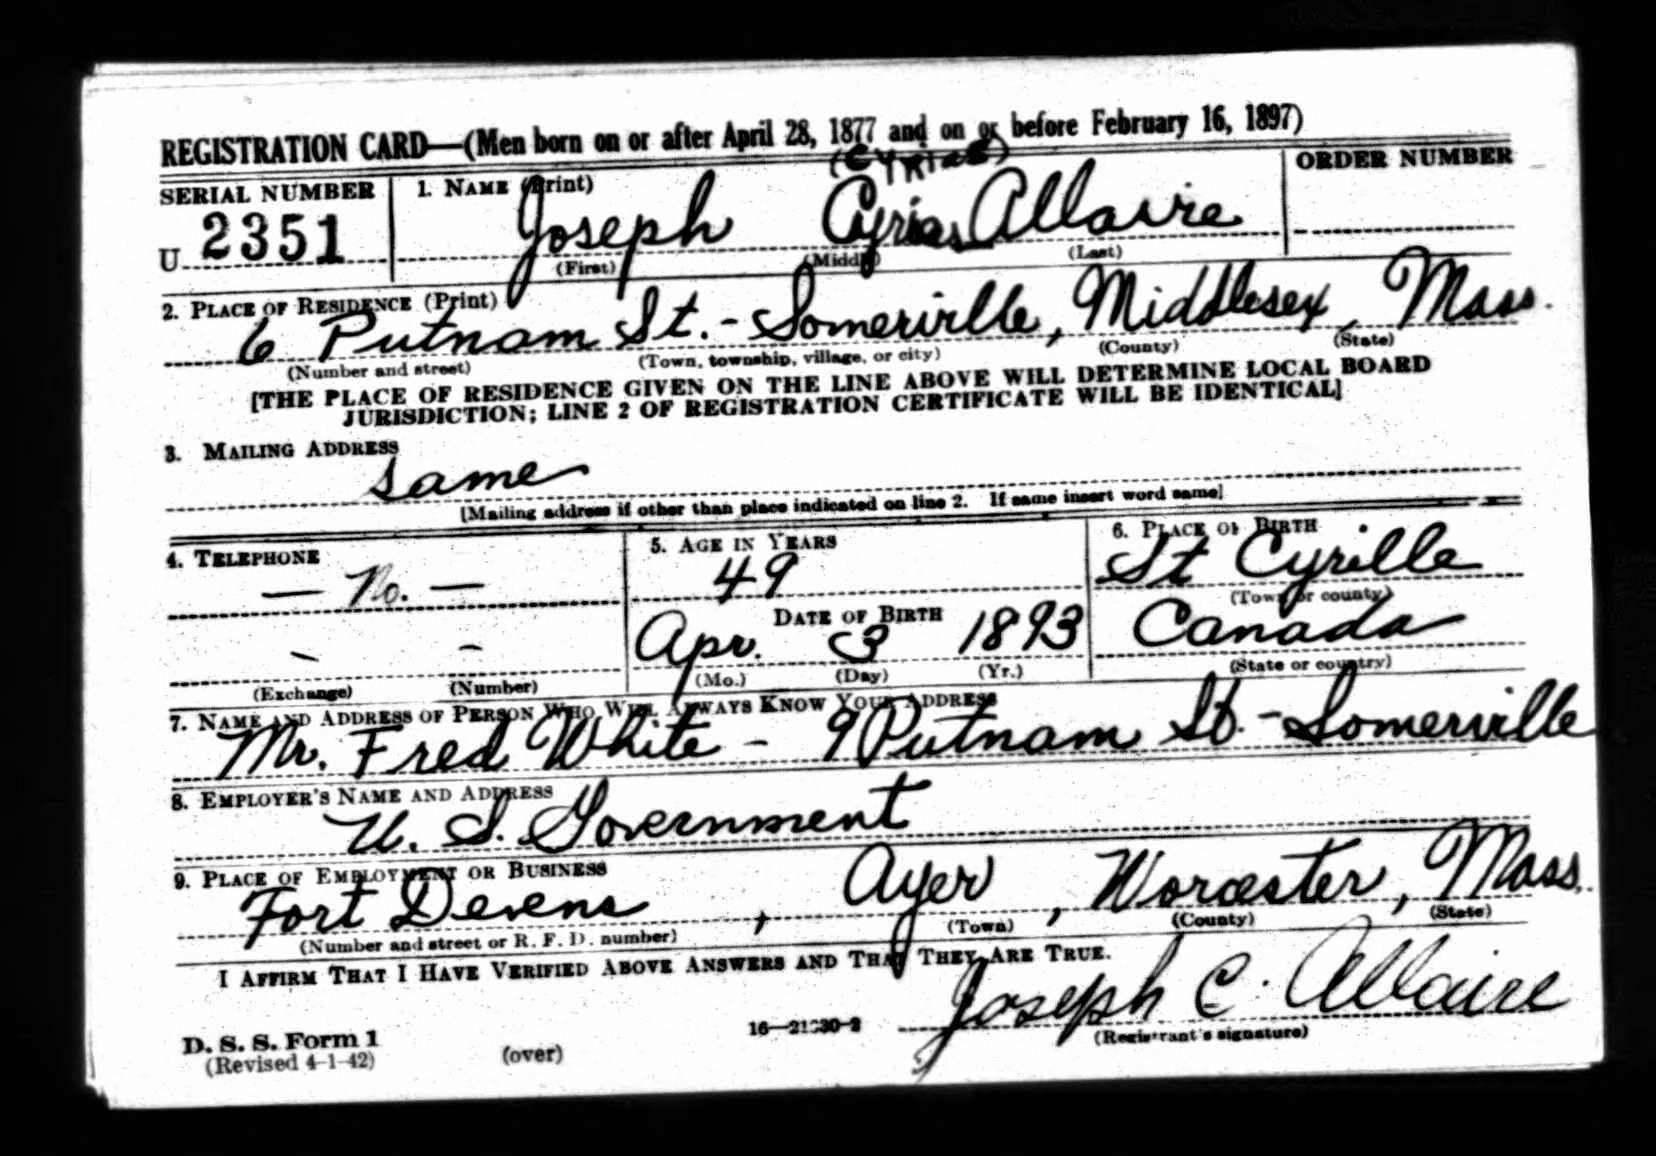 REGISTRATION CARD—(Men born on or after April 28, 1877 and on or before February 16, 1897)
(CYRIAS)
SERIAL NUMBER 1. NAME (Print) ORDER NUMBER
U 2351 Joseph Cyrias Allaire
(First) (Middle) (Last)
2. PLACE OF RESIDENCE (Print)
6 Putnam St. - Somerville, Middlesex, Mass.
(Number and street) (Town, township, village, or city) (County) (State)
[THE PLACE OF RESIDENCE GIVEN ON THE LINE ABOVE WILL DETERMINE LOCAL BOARD
JURISDICTION; LINE 2 OF REGISTRATION CERTIFICATE WILL BE IDENTICAL]
3. MAILING ADDRESS
same
[Mailing address if other than place indicated on line 2. If same insert word same]
4. TELEPHONE 5. AGE IN YEARS 6. PLACE OF BIRTH
— No. — 49 St Cyrille
(Town or county)
DATE OF BIRTH
- - Apr. 3 1893 Canada
(Exchange) (Number) (Mo.) (Day) (Yr.) (State or country)
7. NAME AND ADDRESS OF PERSON WHO WILL ALWAYS KNOW YOUR ADDRESS
Mr. Fred White - 9 Putnam St. - Somerville
8. EMPLOYER'S NAME AND ADDRESS
U. S. Government
9. PLACE OF EMPLOYMENT OR BUSINESS
Fort Devens, Ayer, Worcester, Mass.
(Number and street or R. F. D. number) (Town) (County) (State)
I AFFIRM THAT I HAVE VERIFIED ABOVE ANSWERS AND THAT THEY ARE TRUE.
Joseph C. Allaire
D. S. S. Form 1 (Registrant's signature)
(Revised 4-1-42) (over)